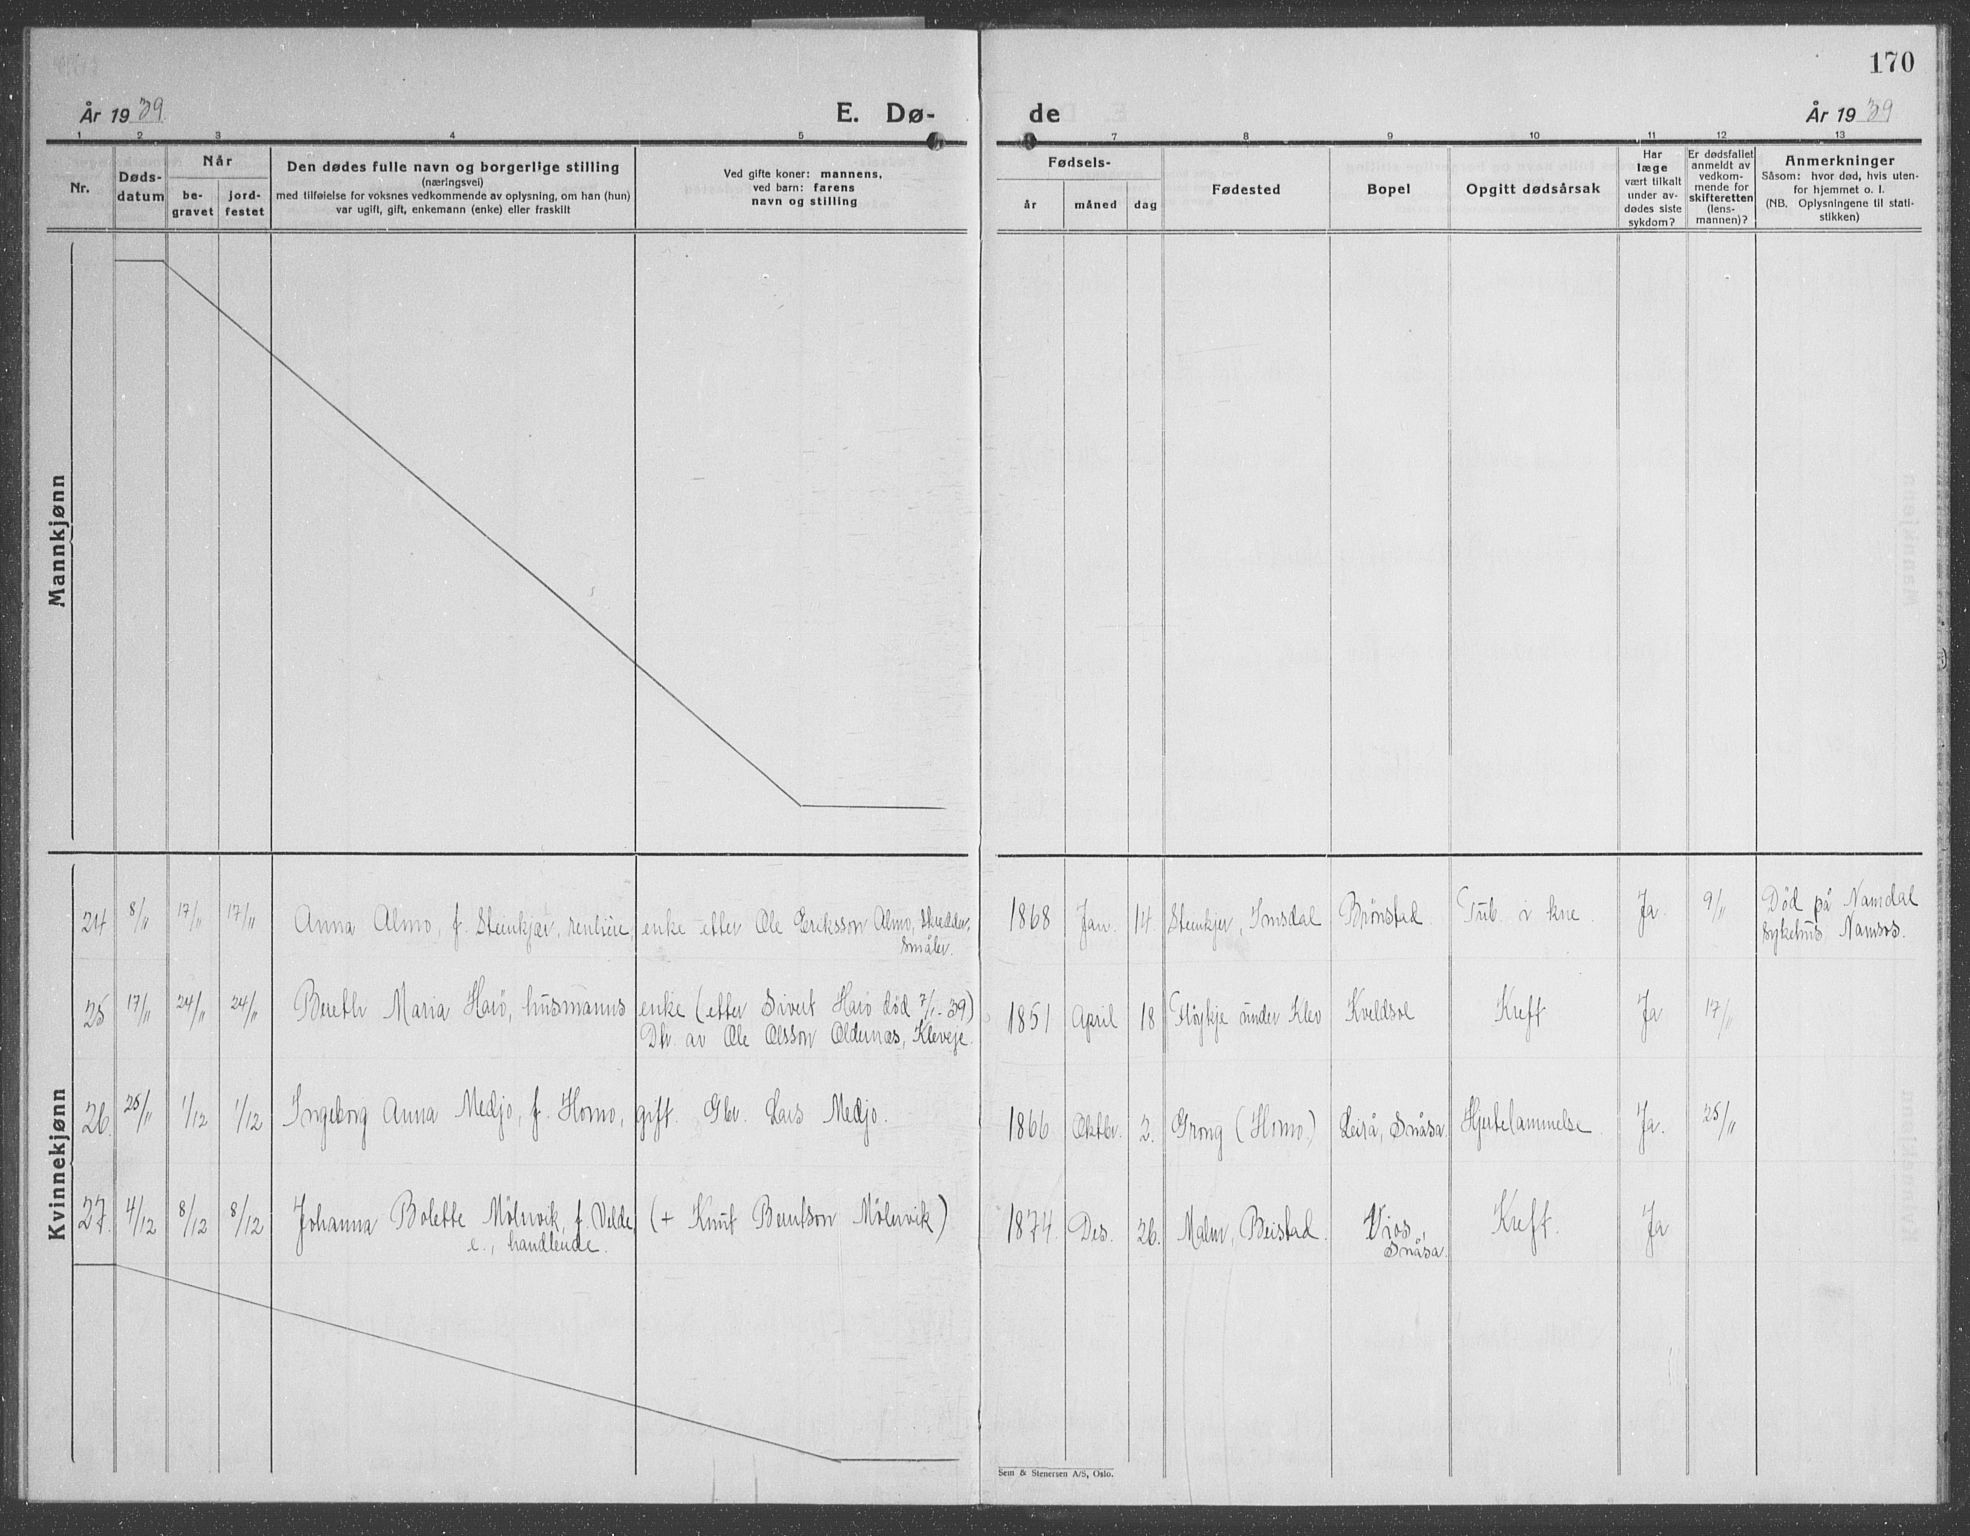 170
År 1939.
E. Dø-
de
År 1939
1 2 3 4 5 7 8 9 10 11 12 13
Nr.
Døds-
datum
Når
be-
gravet
jord-
festet
Den dødes fulle navn og borgerlige stilling
(næringsvei)
med tilføielse for voksnes vedkommende av oplysning, om han (hun)
var ugift, gift, enkemann (enke) eller fraskilt
Ved gifte koner: mannens,
ved barn: farens
navn og stilling
Fødsels-
år måned dag
Fødested
Bopel
Opgitt dødsårsak
Har
læge
vært tilkalt
under av-
dødes siste
sykdom?
Er dødsfallet
anmeldt av
vedkom-
mende for
skifteretten
(lens-
mannen)?
Anmerkninger
Såsom: hvor død, hvis uten-
for hjemmet o. l.
(NB. Oplysningene til stati-
stikken)
Mannkjønn
Kvinnekjønn
24 8/11 17/11 17/11 Anna Almo, f. Steinkjær, rentière, enke etter Ole Eriksson Almo, skredder,
Småler.
1868 Jan. 14. Steinkjer, Imsdal Brønstad. Tub. i kne Ja. 9/11 Død på Namdal
sykehus Namsos.
25 17/11 24/11 24/11 Bereth Maria Harö, husmanns enke (etter Sivert Harö død 7/1-39)
Dtr. av Ole Olsson Oldernæs, Kleveje.
1851 April 18 Fløykje under Klev Kveldsol Kreft Ja 17/11
26. 25/11 1/12 1/12 Ingeborg Anna Medjo, f. Homo, gift. Gbr. Lars Medjo.
1866 Oktbr. 2. Grong (Homo) Leirå, Snåsa. Hjertelammelse Ja. 25/11
27. 4/12 8/12 8/12 Johanna Bolette Mölnvik, f. Velde, (+ Knut Berntson Mölnvik)
e., handlende.
1874. Des. 26. Malm, Beistad. Vios,
Snåsa.
Kreft. Ja
Sem & Stenersen A/S, Oslo.